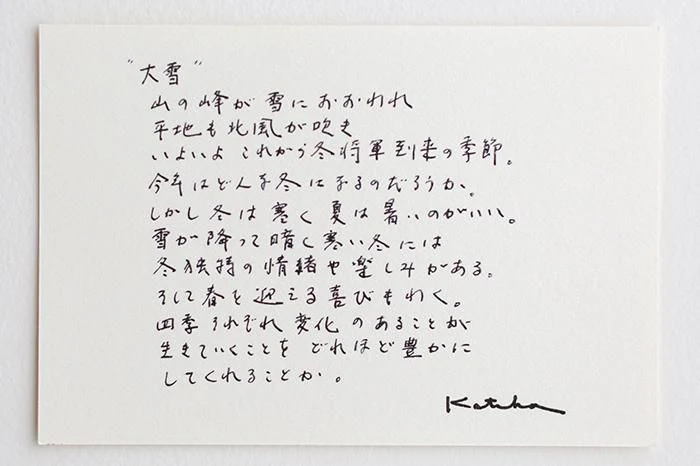 "大雪"
山の峰が雪におおわれ
平地も北風が吹き
いよいよこれから冬将軍到来の季節。
今年はどんな冬になるのだろうか。
しかし冬は寒く夏は暑いのがいい。
雪が降って暗く寒い冬には
冬独特の情緒や楽しみがある。
そして春を迎える喜びもわく。
四季それぞれ変化のあることが
生きていくことをどれほど豊かに
してくれることか。